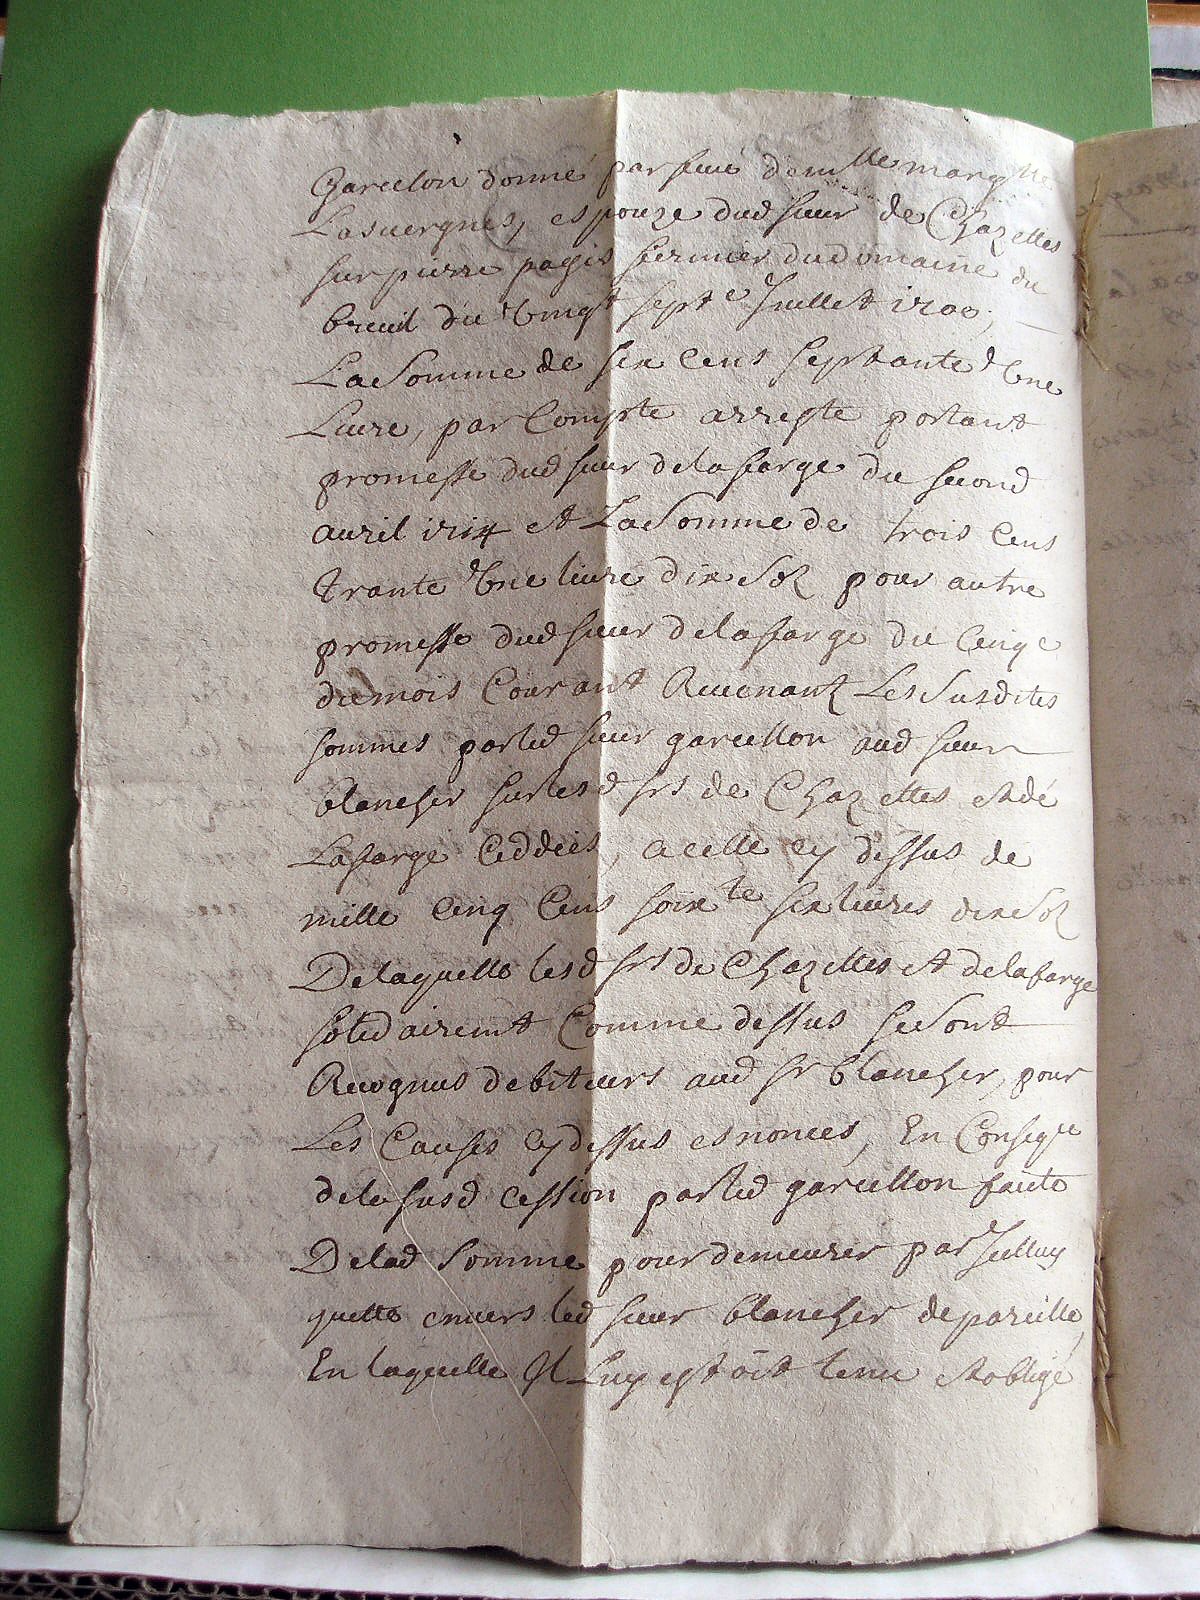 Garcelon donné par feue demlle margtte
Lasuergnes, espouze dud sieur de Chazettes
sur pierre pagis fermier du domaine du
breuil du vingt septe Juillet 1700,
La Somme de six cens septante une
Liure, par Compte arresté portant
promesse dud sieur delafarge du second
auril 1714 et La Somme de trois cens
trante une liure dix Solz pour autre
promesse dud sieur delafarge du
du mois Courant Reuenantz Les Susdites
sommes par led sieur garcellon aud sieur
blancher sur lesd srs de Chazettes et de
Lafarge Ceddées, a celle cy dessus de
mille cinq Cens soixte six liures dix Solz
De laquelle lesd srs de Chazettes et delafarge
solidairemt Comme dessus se Sont
Recognus debiteurs aud sr blancher, pour
Les Causes cy dessus esnoncés, En Conseqce
de la susd cession par led garcellon faite
De lad Somme pour demeurer par Icelluy
quitte enuers led sieur blancher de pareille,
En laquelle Il Luy estoit tenu et obligé